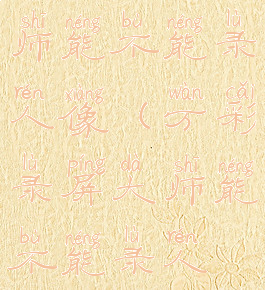 shī néng bù néng lù
师能不能录
rén xiàng ( wàn cǎi
人像(万彩
lù píng dà shī néng
录屏大师能
bù néng lù rén
不能录人